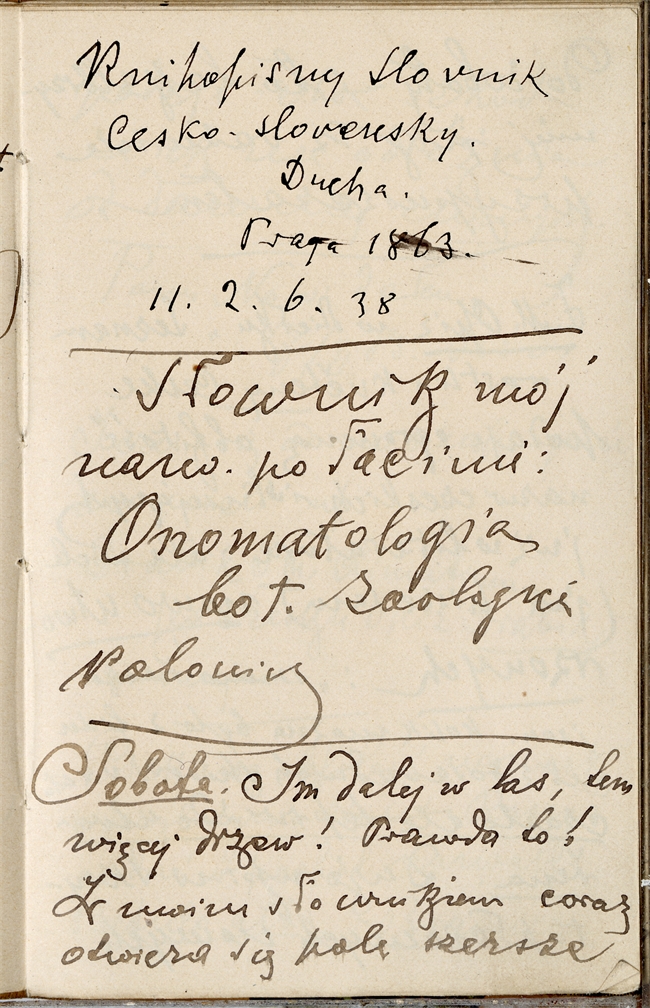 Knihopisny slovnik
Cesko-slovensky.
Ducha.
Praga 1863.
11. 2. 6. 38
Słownik mój
nazw. po łacinie:
Onomatologia
bot. zoologici
Polonica
Sobota. Im dalej w las, tem
więcej drzew! Prawda to!
Z moim słownikiem coraz
otwiera się pole szersze